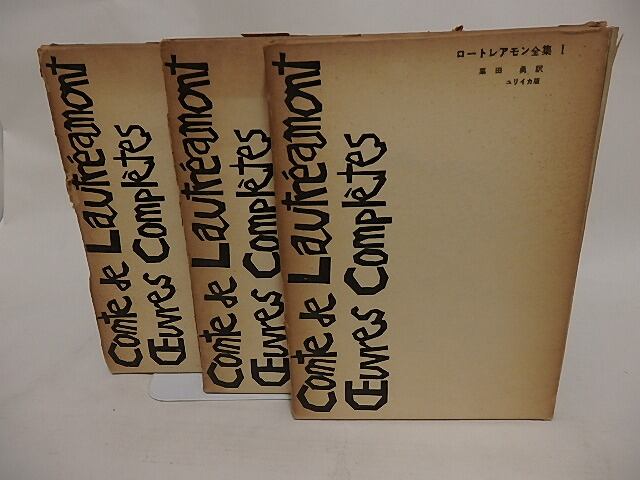 Comte de Lautréamont
Œuvres Complètes
Comte de Lautréamont
Œuvres Complètes
ロートレアモン全集 I
栗田 勇訳
ユリイカ版
Comte de Lautréamont
Œuvres Complètes